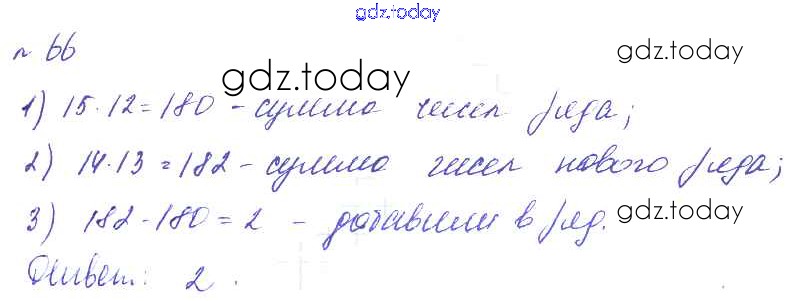 gdz.today
№ 66
gdz.today
1) 15·12=180 - сумма чисел ряда;
2) 14·13=182 - сумма чисел нового ряда;
3) 182-180=2 - добавили в ряд.
gdz.today
Ответ: 2.
gdz.today